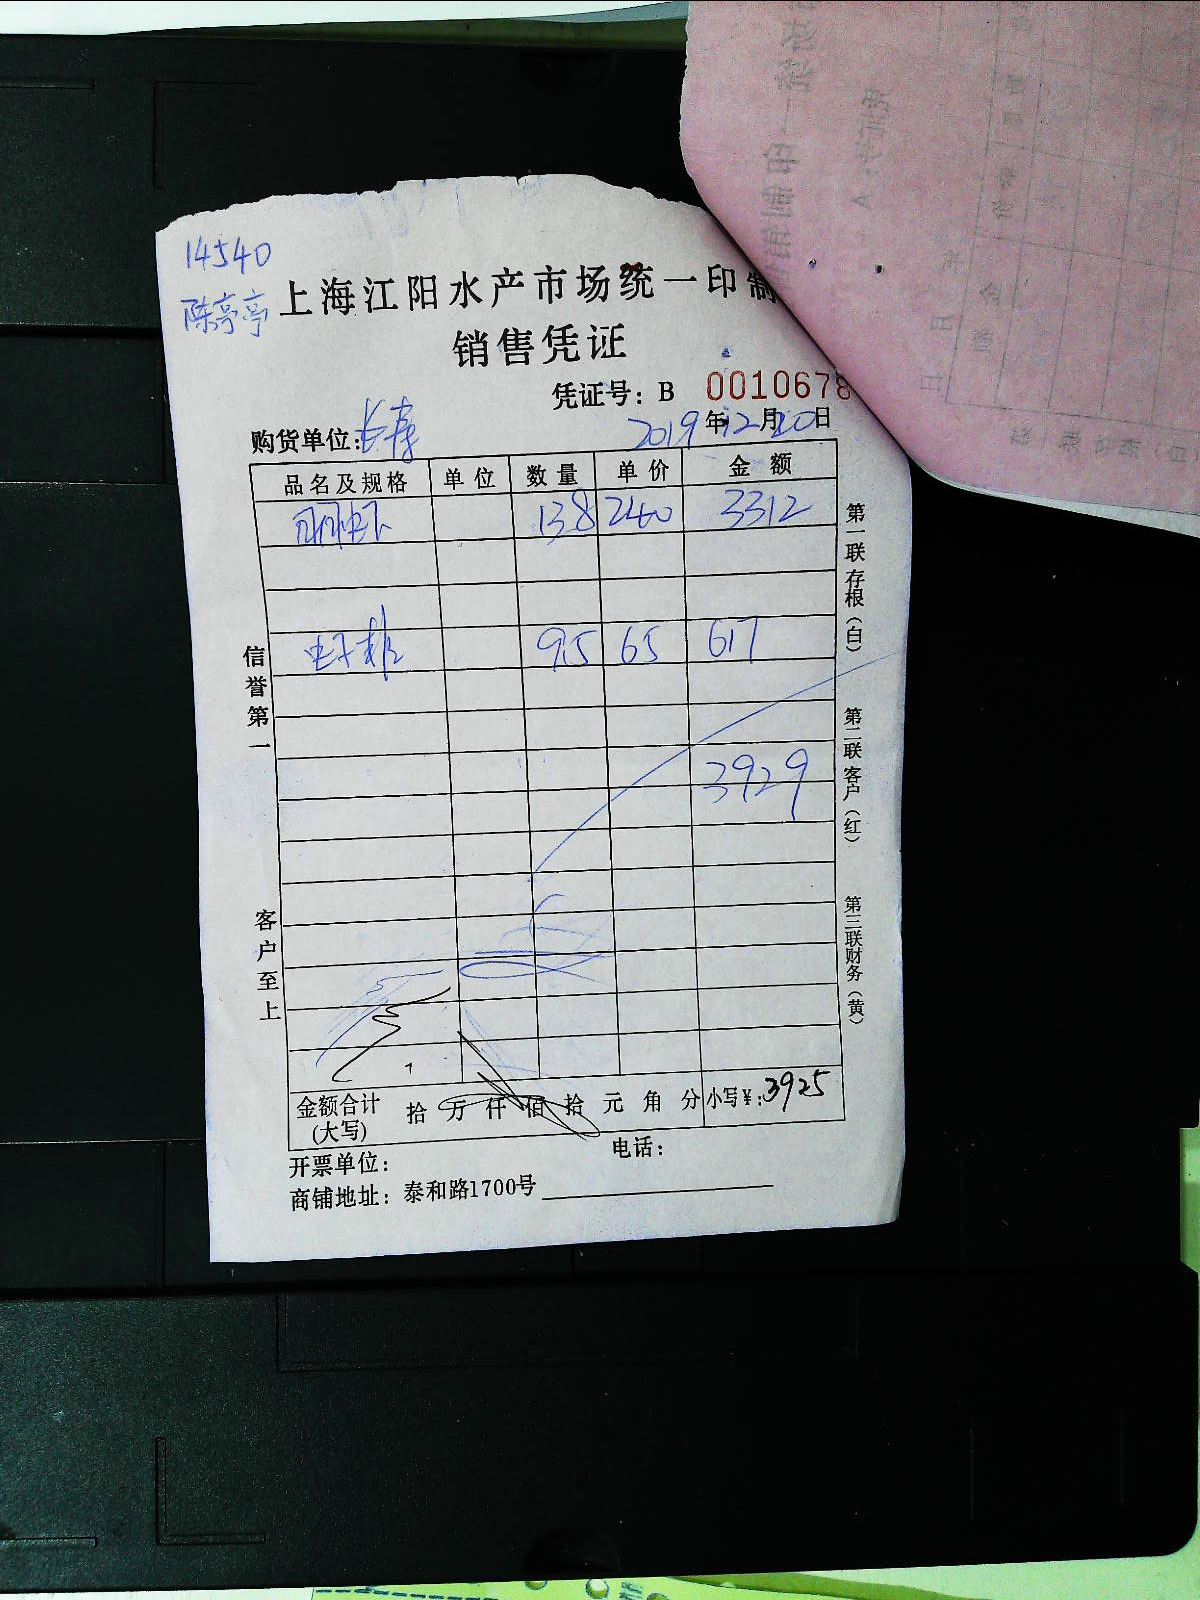 14540
陈亭亭
上海江阳水产市场统一印制
销售凭证
凭证号：B 0010678
购货单位：长寿 2019年12月20日
品名及规格 单位 数量 单价 金额
138 240 3312
95 65 617
3929
金额合计(大写) 拾万仟佰拾元角分 小写¥：3925
开票单位： 电话：
商铺地址：泰和路1700号
信誉第一
客户至上
第一联存根(白)
第二联客户(红)
第三联财务(黄)